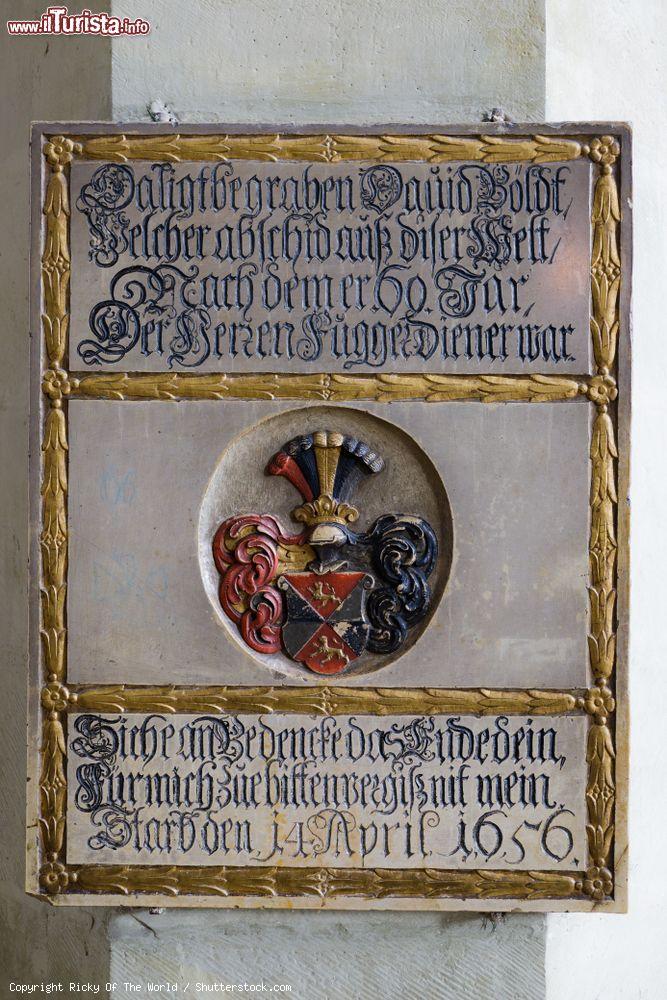 www.ilTurista.info
Da ligt begraben Dauid Böldt,
Welcher abschid auß diser Welt,
Nach dem er 60. Jar,
Der Herren Fugger Diener war.
Siehe an Bedencke das Ende dein,
Für mich zue bitten vergiß nit mein.
Starb den 14 April 1656.
Copyright Ricky Of The World / Shutterstock.com